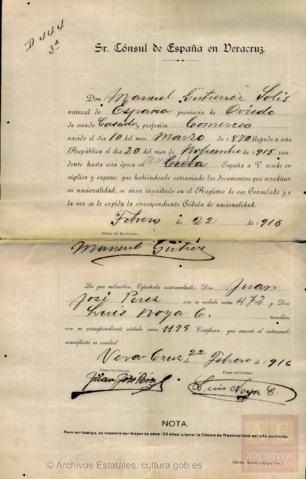 D 444
3ª
Sr. Cónsul de España en Veracruz.
Don Manuel Gutierrez Solis
natural de España provincia de Oviedo
de estado Casado y profesión Comercio
nacido el dia 10 del mes Marzo de 1870 llegado á esta
República el dia 20 del mes de Noviembre de 1915
sidente hasta esta época en Cuba España a V. atento su
suplica y expone: que habiéndosele extraviado los documentos que acreditan
su nacionalidad, se sirva inscribirlo en el Registro de ese Consulado y a
la vez se le expida la correspondiente Cédula de nacionalidad.
Febrero 22 de 1916
Firma del Interesado.
Manuel Gutierrez
Los que subscriben Españoles matriculados, Don Juan
José Pérez con su cédula núm 472 y Don
Luis Noya C. también
con su correspondiente cédula núm 1195 Certifican, que cuanto el interesado
manifiesta es verdad
Vera Cruz 22 Febrero de 1916
Firma del testigo. Firma del testigo.
Juan José Pérez Luis Noya C.
NOTA.
Para ser testigo, se requiere ser mayor de edad (23 años) y tener la Cédula de Nacionalidad del año corriente
ARCHIVOS
© Archivos Estatales, cultura.gob.es